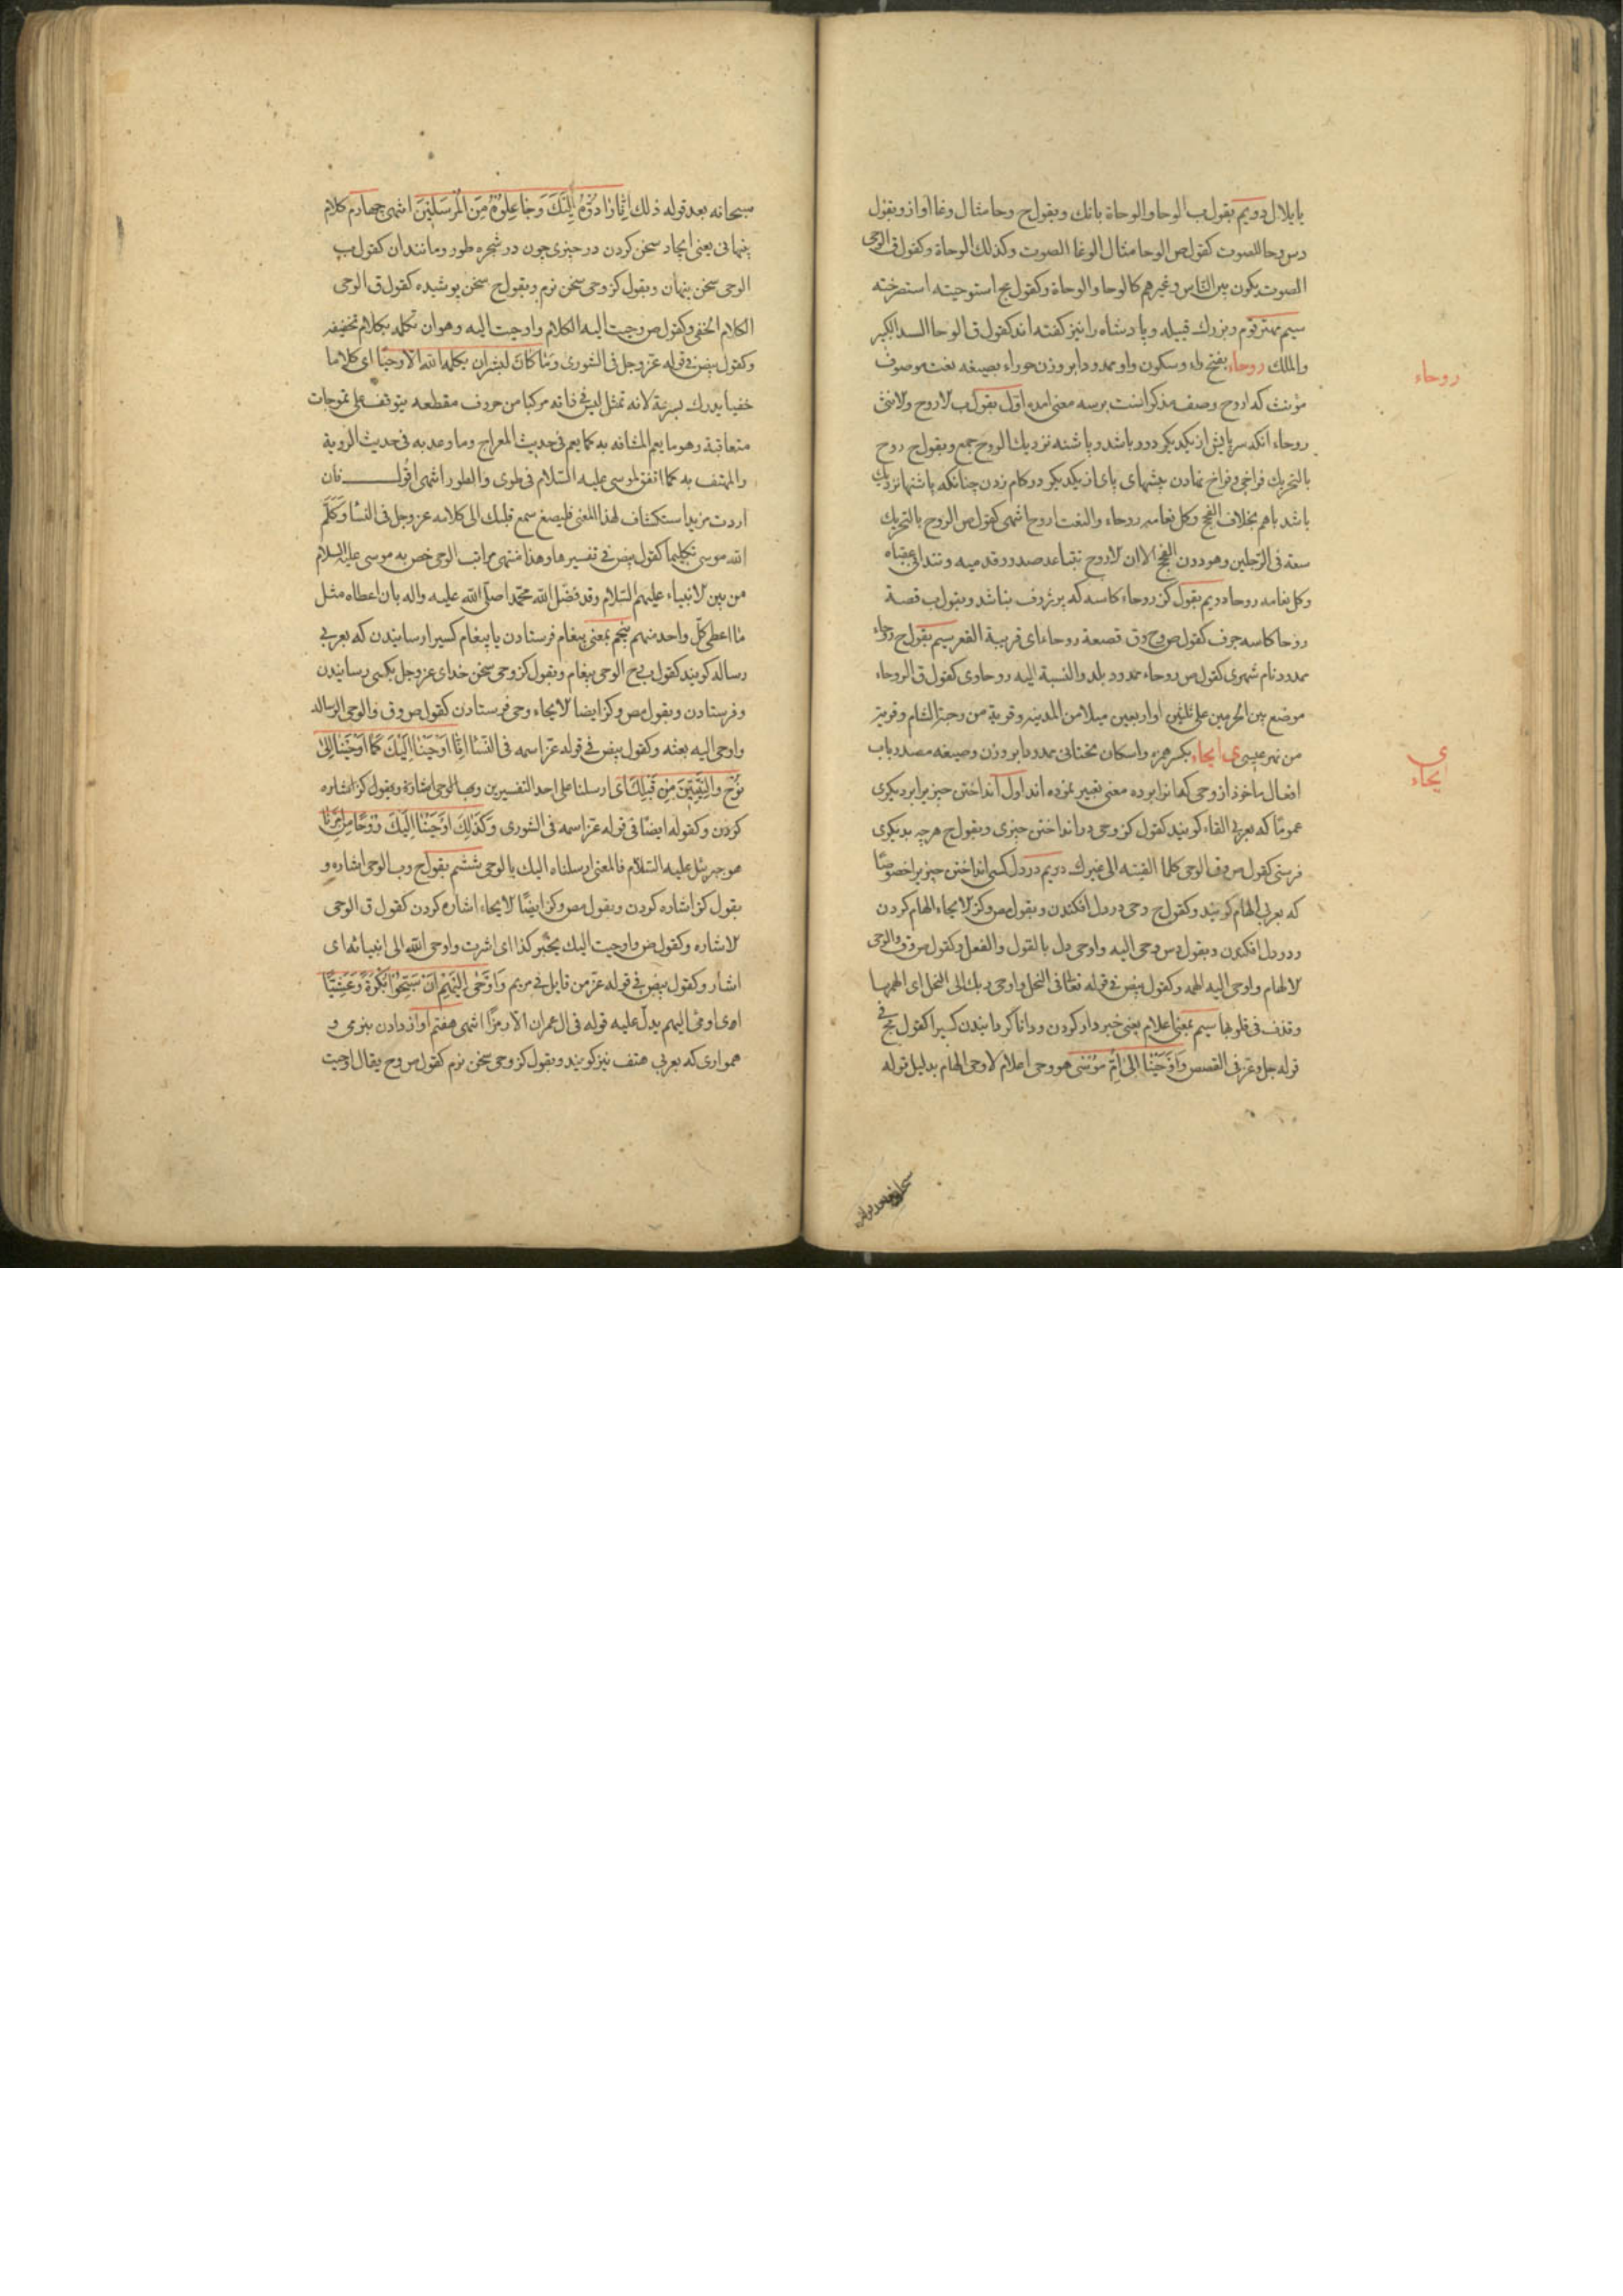 یا بلال دویم بقول ب الوحا والوحاة بانك وبقول ح وحا مثال وغا آواز وبقول
دس وحا للصوت كقول ص الوحا مثال الوغا الصوت وكذلك الوحاة وكقول ق الوحی
الصوت یكون بین الناس وغیرهم كالوحا والوحاة وكقول مج استوحیته استصرخته
سیم مهتر قوم وبزرك قبیله وپادشاه را نیز كفته اند كقول ق الوحا السید الكبیر
والملك روحاء بفتح راء وسكون واو ممدودا بر وزن حوراء بصیغه نعت موصوف
روحاء
مؤنث كه اروح وصف مذكر انست بر سه معنی امده اول بقول ب لاروح ولانثی
روحاء انكه سر پایش از یكدیكر دور باشد و پاشنه نزدیك الروح جمع وبقول ج روح
بالتحریك فراخی وفراخ نهادن پیشهای پای از یكدیكر در كام زدن چنانكه پاشنها نزدیك
باشد باهم بخلاف الفحج وكل نعامه روحاء والنعت اروح انتهی كقول ص الروح بالتحریك
سعة فی الرجلین وهو دون الفحج الا ان لاروح یتباعد صدور قدمیه وتتدانی عقباه
وكل نعامه روحا دویم بقول كز روحاء كاسه كه پر ژرف نباشد وبقول ب قصعة
روحا كاسه جرف كقول ص وح وق قصعة روحاء ای قریبة القعر سیم بقول ح روحاء
ممدود نام شهری كقول س روحاء ممدود بلد والنسبة الیه روحاوی كقول ق الروحاء
موضع بین الحرمین علی ثلثین او اربعین میلا من المدینه وقریة من رحبة الشام وقریة
من نهر عیسی ی ایحاء بكسر همزه واسكان تختانی ممدودا بر وزن وصیغه مصدر باب
ی
ایحاء
افعال ماخوذ از وحی كه انرا بر ده معنی تعبیر نموده اند اول انداختن چیز یرا بر دیكری
عموما كه بعربی القاء كویند كقول كز وحی در انداختن چیزی وبقول ج هرچه بدیكری
فرستی كقول ص وق الوحی كلما القیته الی غیرك دویم در دل كسی انداختن چیز یرا خصوصا
كه بعربی الهام كویند وكقول ج وحی در دل افكندن وبقول مص وكز لایحاء الهام كردن
ودر دل افكندن وبقول دس وحی الیه واوحی دل بالقول والفعل وكقول ص وق والوحی
لالهام واوحی الیه الهمه وكقول بیض فی قوله تعالی فی النحل واوحی ربك الی النحل ای الهمها
وقذف فی قلوبها سیم بمعنی اعلام یعنی خبردار كردن ودانا كردانیدن كسیرا كقول مج فی
قوله جل وعز فی القصص وَاَوْحَیْنَا اِلی اُمِّ مُوْسٰی هو وحی اعلام لا وحی الهام بدلیل قوله
سبحانه بعد قوله ذلك اِنَّا رَادُّوْهُ اِلَیْكَ وَجَاعِلُوْهُ مِنَ الْمُرْسَلِیْنَ انتهی چهارم كلام
پنهانی یعنی ایجاد سخن كردن در چیزی چون در شجره طور ومانند ان كقول ب
الوحی سخن پنهان وبقول كز وحی سخن نرم وبقول ح سخن پوشیده كقول ق الوحی
الكلام الخفی وكقول ص وحیت الیه الكلام واوحیت الیه وهو ان تكلمه بكلام تخفیفه
وكقول بیض فی قوله عز وجل فی الشوری وَمَا كَانَ لِبَشَرٍ اَن یكلمه الله الا وحیًا ای كلاما
خفیا یدرك بسرعة لانه تمثل لیس فی ذاته مركبا من حروف مقطعه یتوقف علی تموجات
متعاقبة وهو ما یعم المشافه به كما یعم فی حدیث المعراج وما وعد به فی حدیث الرویة
والمهتف به كما اتفق لموسی علیه السّلام فی طوی والطور انتهی اقول فان
اردت مزید استكشاف لهذا المعنی فلیصغ سمع قلبك الی كلامه عز وجل فی النسا وَكَلَّمَ
الله موسی تكلیما كقول بیض فی تفسیرها وهذا منتهی مراتب الوحی خص به موسی علیه السلام
من بین لانبیاء علیهم السّلام وقد فضّل الله محمّدا صلّی الله علیه واله بان اعطاه مثل
ما اعطی كلّ واحد منهم پنجم بمعنی پیغام فرستادن یا پیغام كسیرا رسانیدن كه بعربی
رساله كویند كقول ب ج الوحی پیغام وبقول كز وحی سخن خدای عز وجل بكسی رسانیدن
وفرستادن وبقول مص وكز ایضا لایحاء وحی فرستادن كقول ص وق والوحی الرساله
واوحی الیه بعثه وكقول بیض فی قوله عزّ اسمه فی النّسا اِنَّا اَوْحَیْنَا اِلَیْكَ كَمَا اَوْحَیْنَا اِلٰی
نُوْحٍ وَالنَّبِیّیْنَ مِنْ قَبْلِكَ ای ارسلنا علی احد التفسیرین وب الوحی اشارة وبقول كز اشاره
كردن وكقوله ایضًا فی قوله عزّ اسمه فی الشوری وَكَذٰلِكَ اَوْحَیْنَا اِلَیْكَ رُوْحًا مِنْ اَمْرِنَا
هو جبرئیل علیه السّلام فالمعنی ارسلناه الیك بالوحی ششم بقول ج وب الوحی اشاره و
بقول كز اشاره كردن وبقول مص وكز ایضًا لایحاء اشاره كردن كقول ق الوحی
لاشاره وكقول ص واوحیت الیك بخبر كذا ای اشرت واوحی الله الی انبیائه ای
اشار وكقول بیض فی قوله عزّ من قایل فی مریم وَاَوْحٰی اِلَیْهِمْ اَنْ سَبِّحُوْا بُكْرَةً وَعَشِیًّا
ای اومی الیهم یدلّ علیه قوله فی ال عمران الّا رمزًا انتهی هفتم آواز دادن بنرمی و
همواری كه بعربی هتف نیز كویند وبقول كز وحی سخن نرم كقول ص وح یقال اوحیت